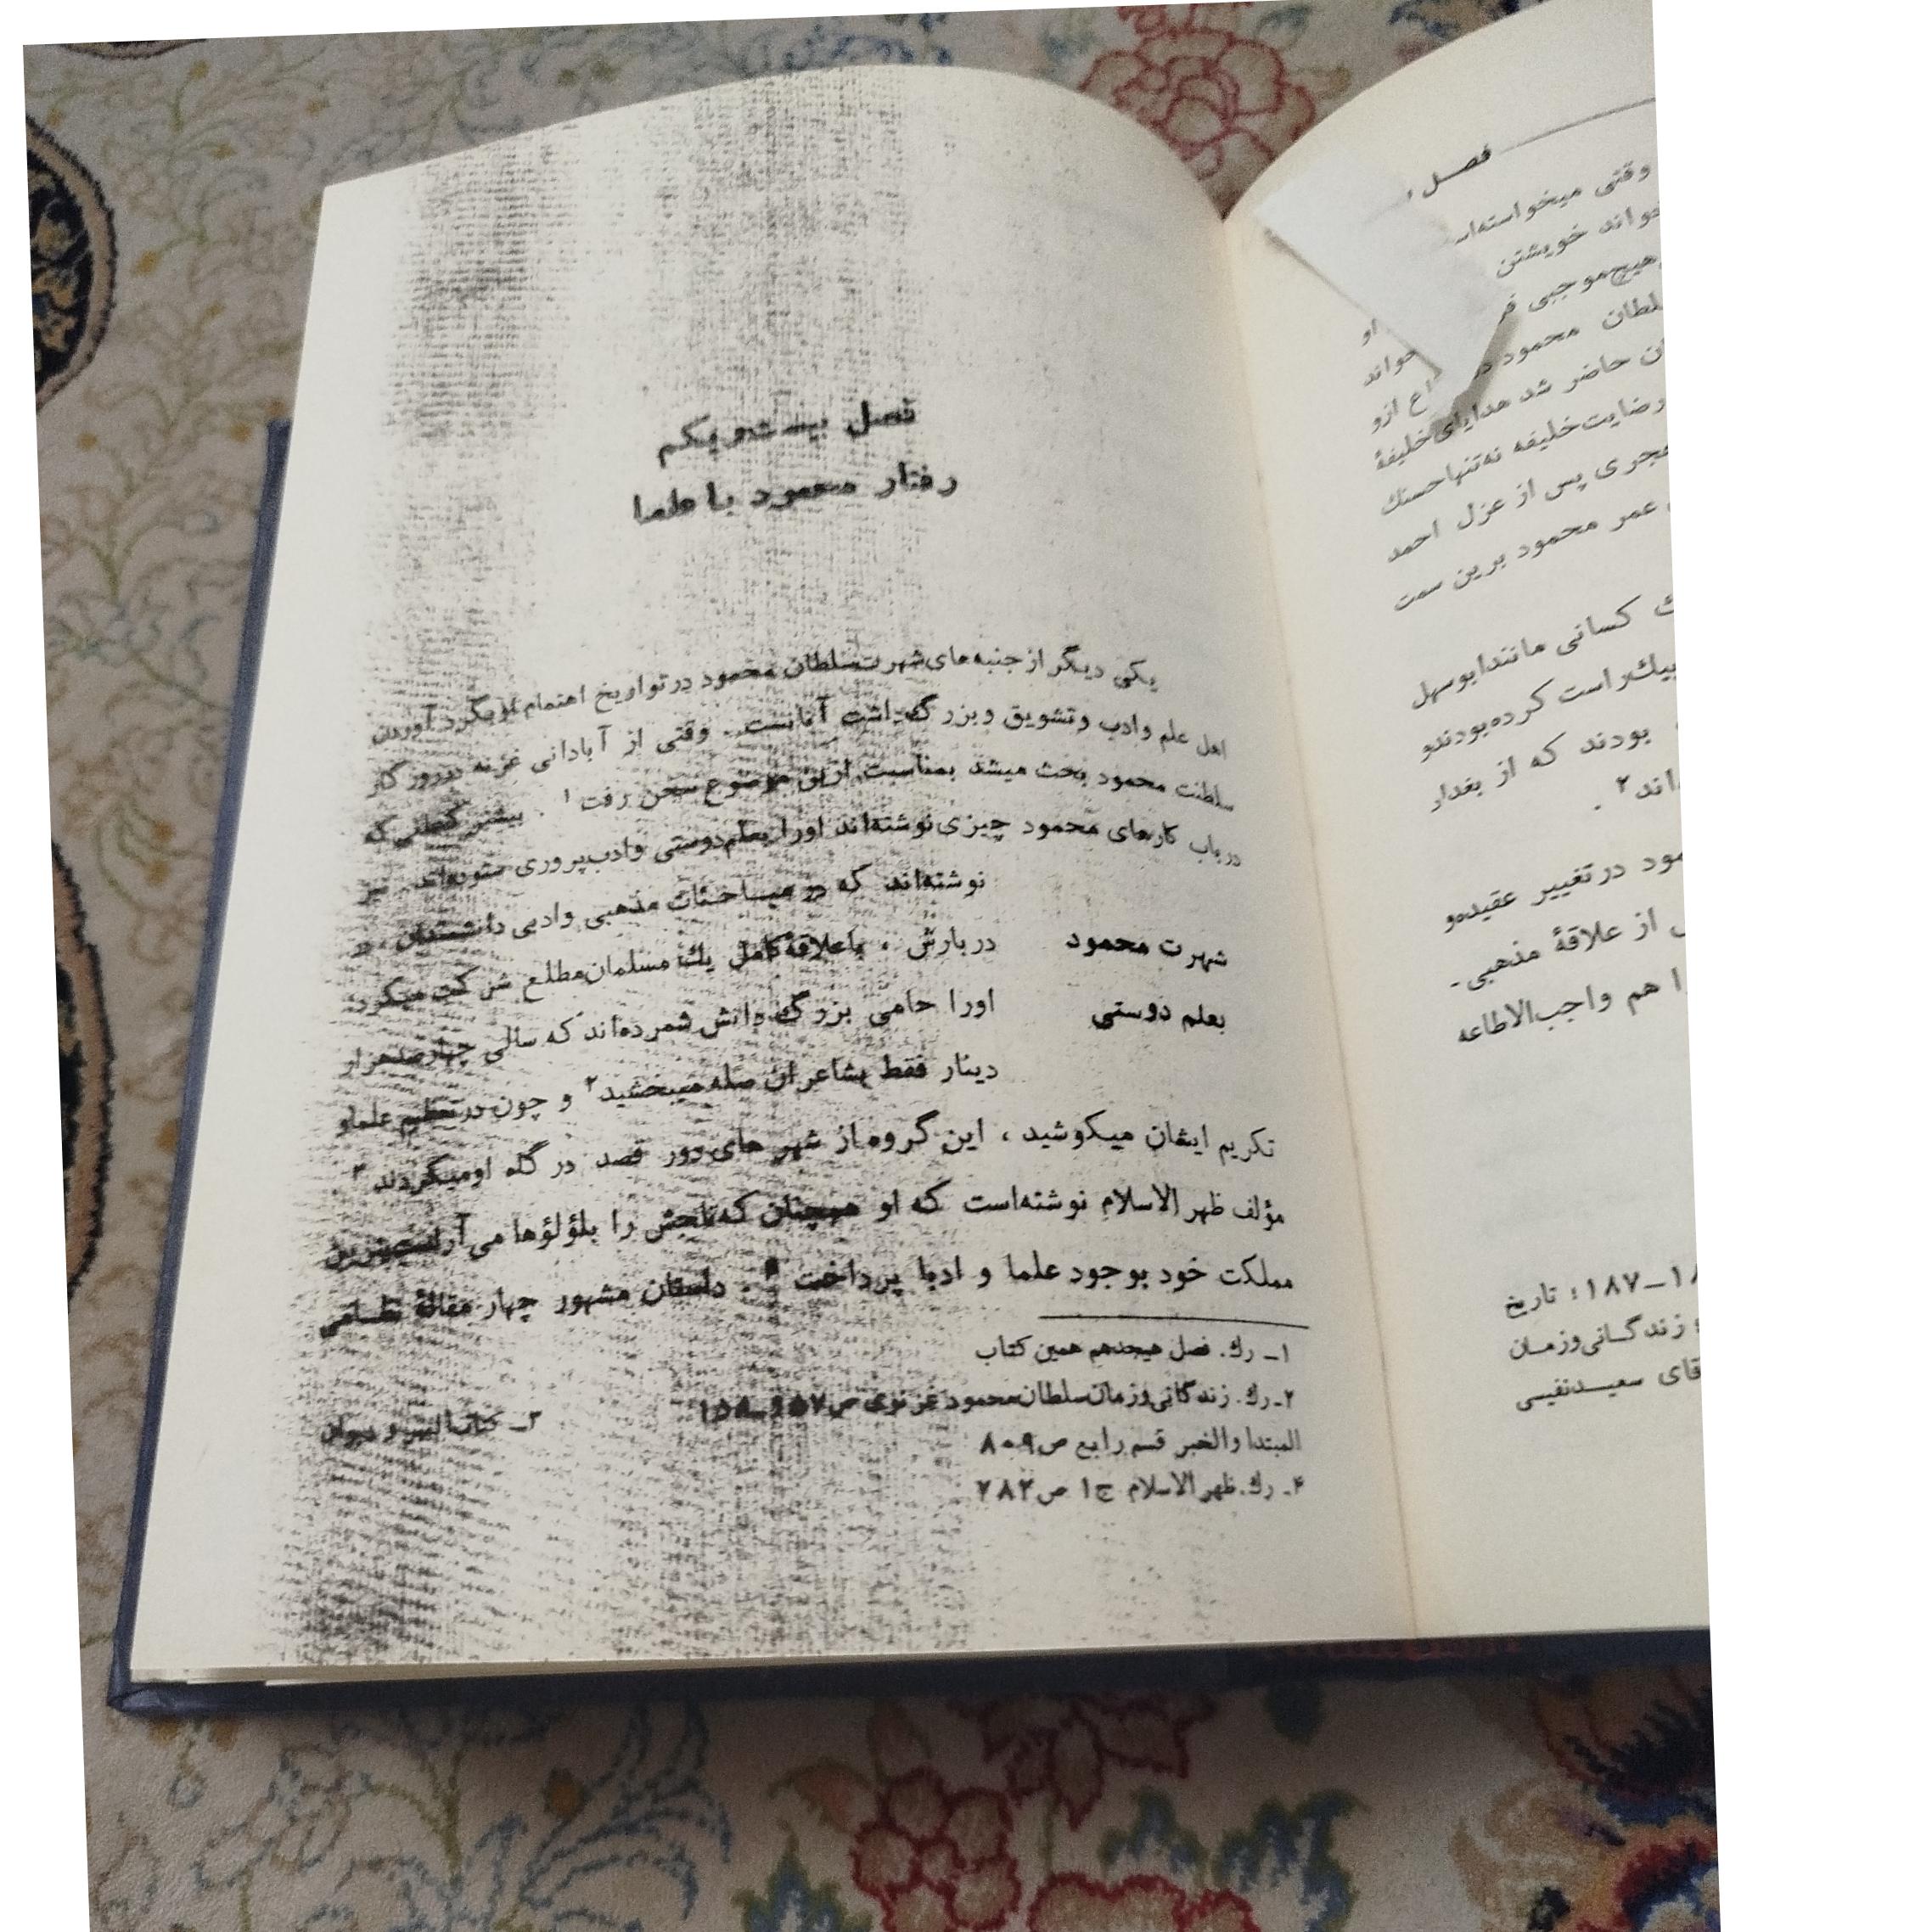 فصل بیست‌ویکم
رفتار محمود با علما
یکی دیگر از جنبه‌های شهرت سلطان محمود در تواریخ اهتمام او بگرد آوردن
اهل علم و ادب و تشویق و بزرگ‌داشت آنانست. وقتی از آبادانی غزنه در روزگار
سلطنت محمود بحث میشد بمناسبت ازین موضوع سخن رفت۱ . بیشتر کسانی که
درباب کارهای محمود چیزی نوشته‌اند اورا بعلم‌دوستی و ادب‌پروری ستوده‌اند
نوشته‌اند که در مباحثات مذهبی و ادبی دانشمندان
شهرت محمود
دربارش ، باعلاقهٔ کامل یك مسلمان مطلع شرکت میکرد.
بعلم دوستی
اورا حامی بزرگ دانش شمرده‌اند که سالی چهارصدهزار
دینار فقط بشاعران صله میبخشید۲ و چون در تعظیم علما و
تکریم ایشان میکوشید ، این گروه از شهرهای دور قصد درگاه او میکردند۳
مؤلف ظهرالاسلام نوشته‌است که او همچنان که تاجش را بلؤلؤها می‌آراست بتزیین
مملکت خود بوجود علما و ادبا پرداخت۴ . داستان مشهور چهار مقالهٔ نظامی
۱ـ رك. فصل هیجدهم همین کتاب
۲ـ رك. زندگانی وزمان سلطان محمود غزنوی ص ۱۵۷ـ۱۵۸ ۳ـ کتاب العبر و دیوان
المبتدا والخبر قسم رابع ص ۸۰۹
۴ـ رك. ظهرالاسلام ج۱ ص ۲۸۲
فصل
وقتی میخواسته‌اند
خویشتن
هیچ‌موجبی او
محمود
حاضر شد هدایای خلیفهٔ
رضایت خلیفه نه‌تنها حسنك
پس از عزل احمد
عمر محمود برین سمت
کسانی مانند ابوسهل
راست کرده بودند و
بودند که از بغداد
در تغییر عقیده‌و
از علاقهٔ مذهبی-
هم واجب‌الاطاعه
۱۸۷ ؛ تاریخ
زندگانی وزمان
سعید نفیسی